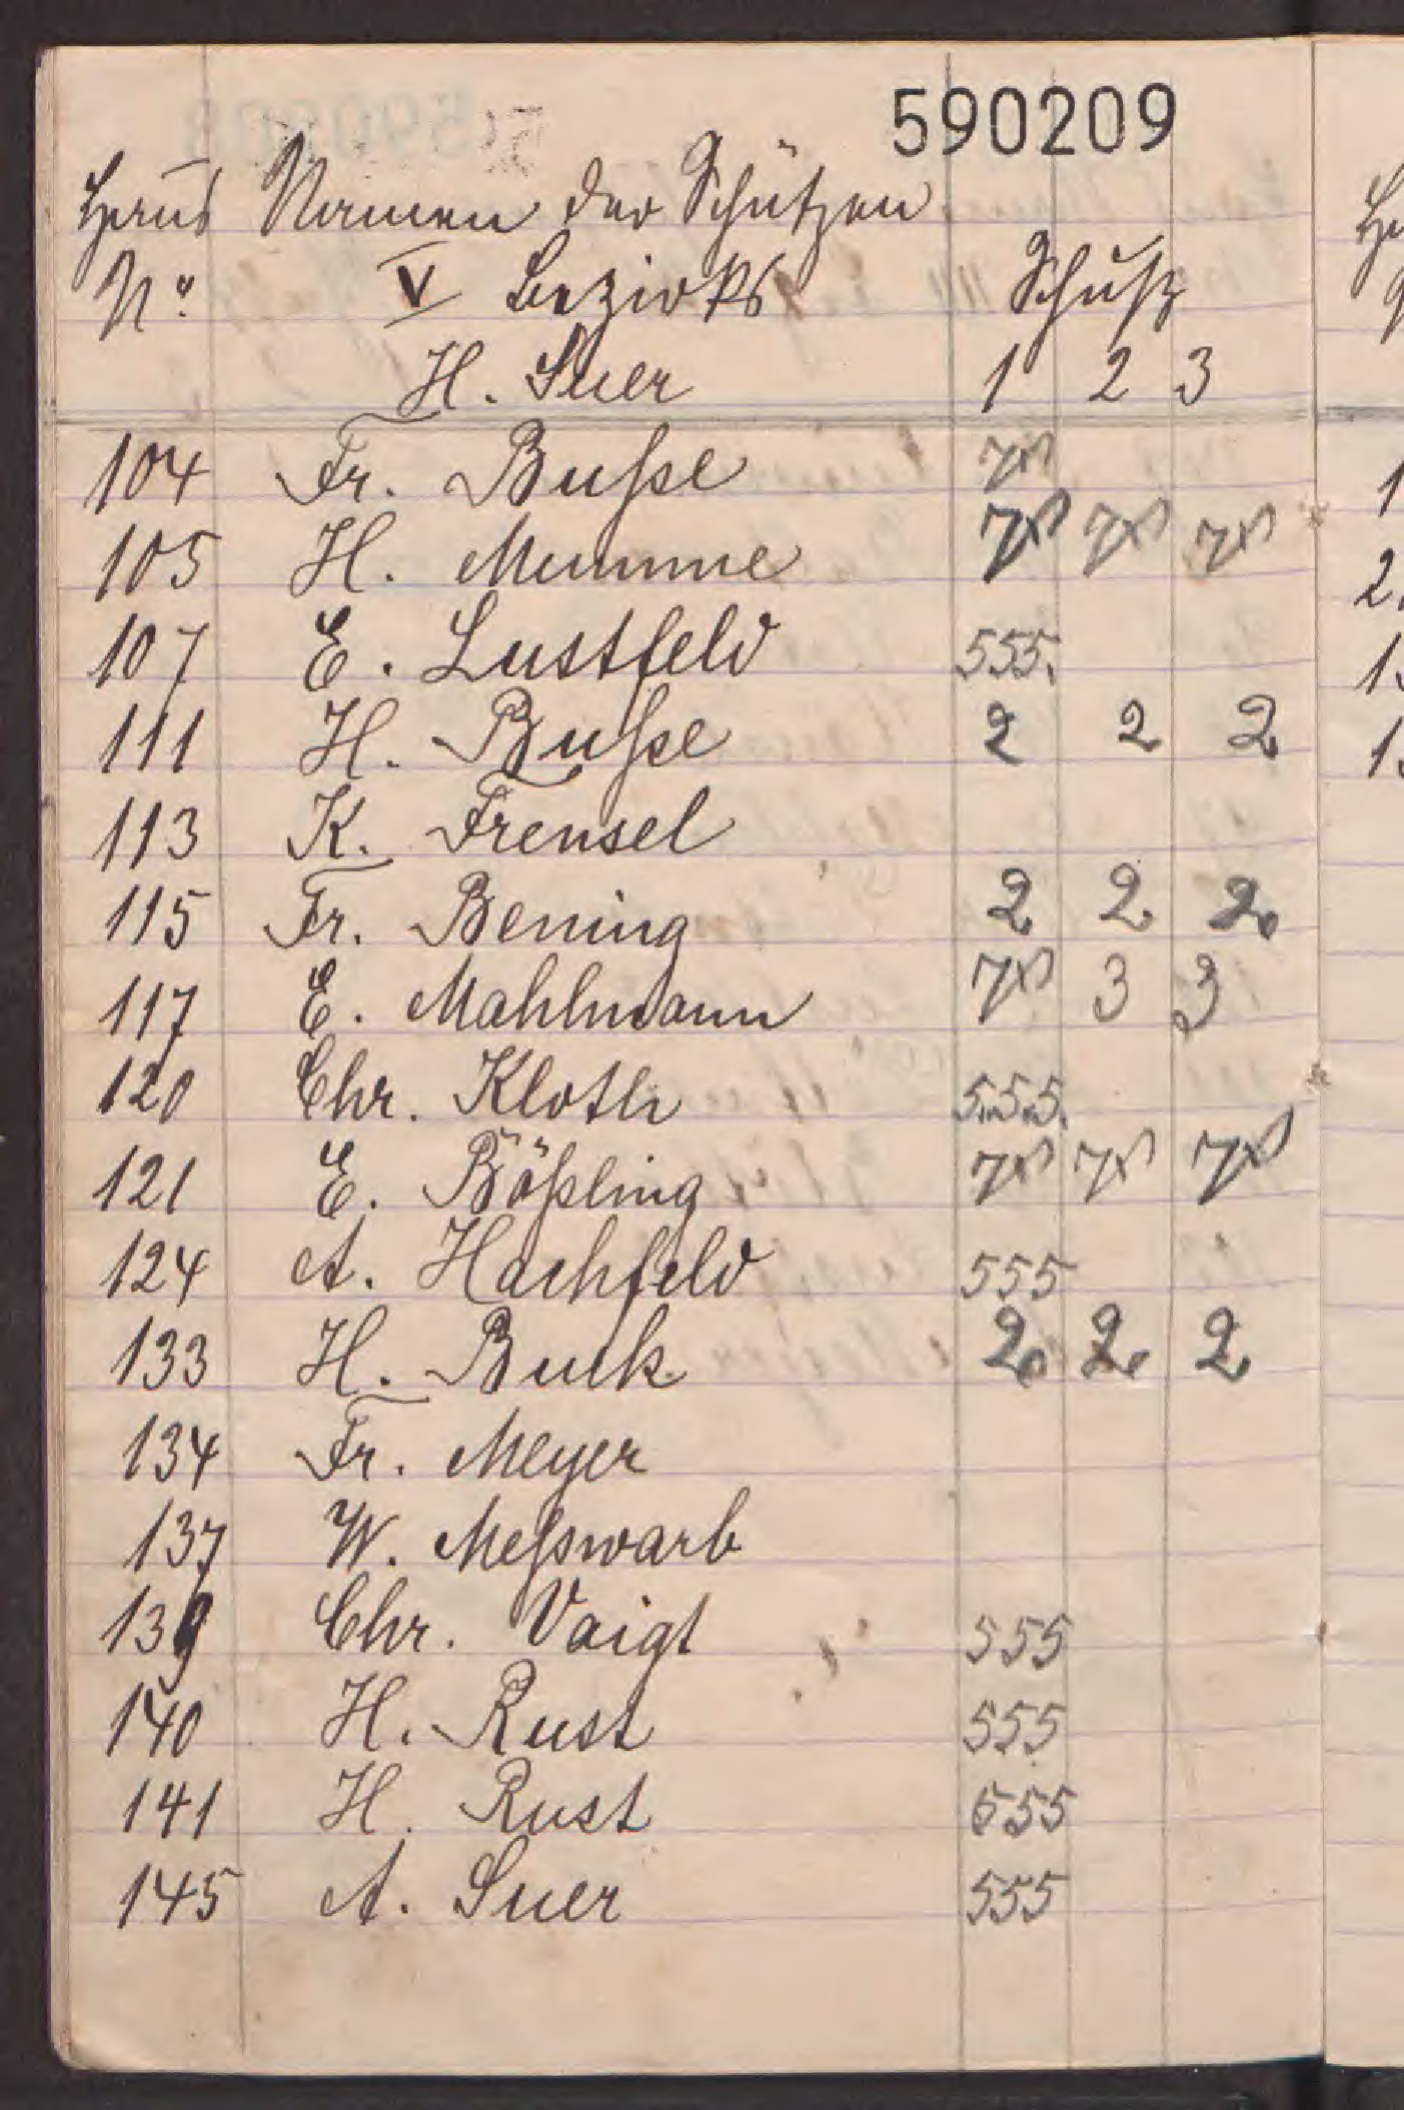 590209
Haus Namen der Schützen
No. V Bezirks Schuß
H. Suer 1 2 3
104 Fr. Bußse
105 H. Mumme
107 E. Lustfeld 555.
111 H. Bußse 2 2 2
113 K. Frensel
115 Fr. Bening 2 2 2
117 E. Mahlmann 3 3
120 Chr. Kloth 5.5.5.
121 E. Bößling
124 A. Hachfeld 555
133 H. Buck 2 2 2
134 Fr. Meyer
137 W. Meßwarb
139 Chr. Vaigt 555
140 H. Rust 555
141 H. Rust 555
145 A. Suer 555